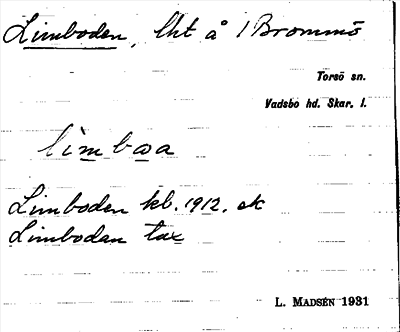 Limboden, lht å Brommö
Torsö sn.
Vadsbo hd. Skar. l.
lìmbωa
Limboden kb. 1912. ek
Limbodan tax
L. MADSÉN 1931